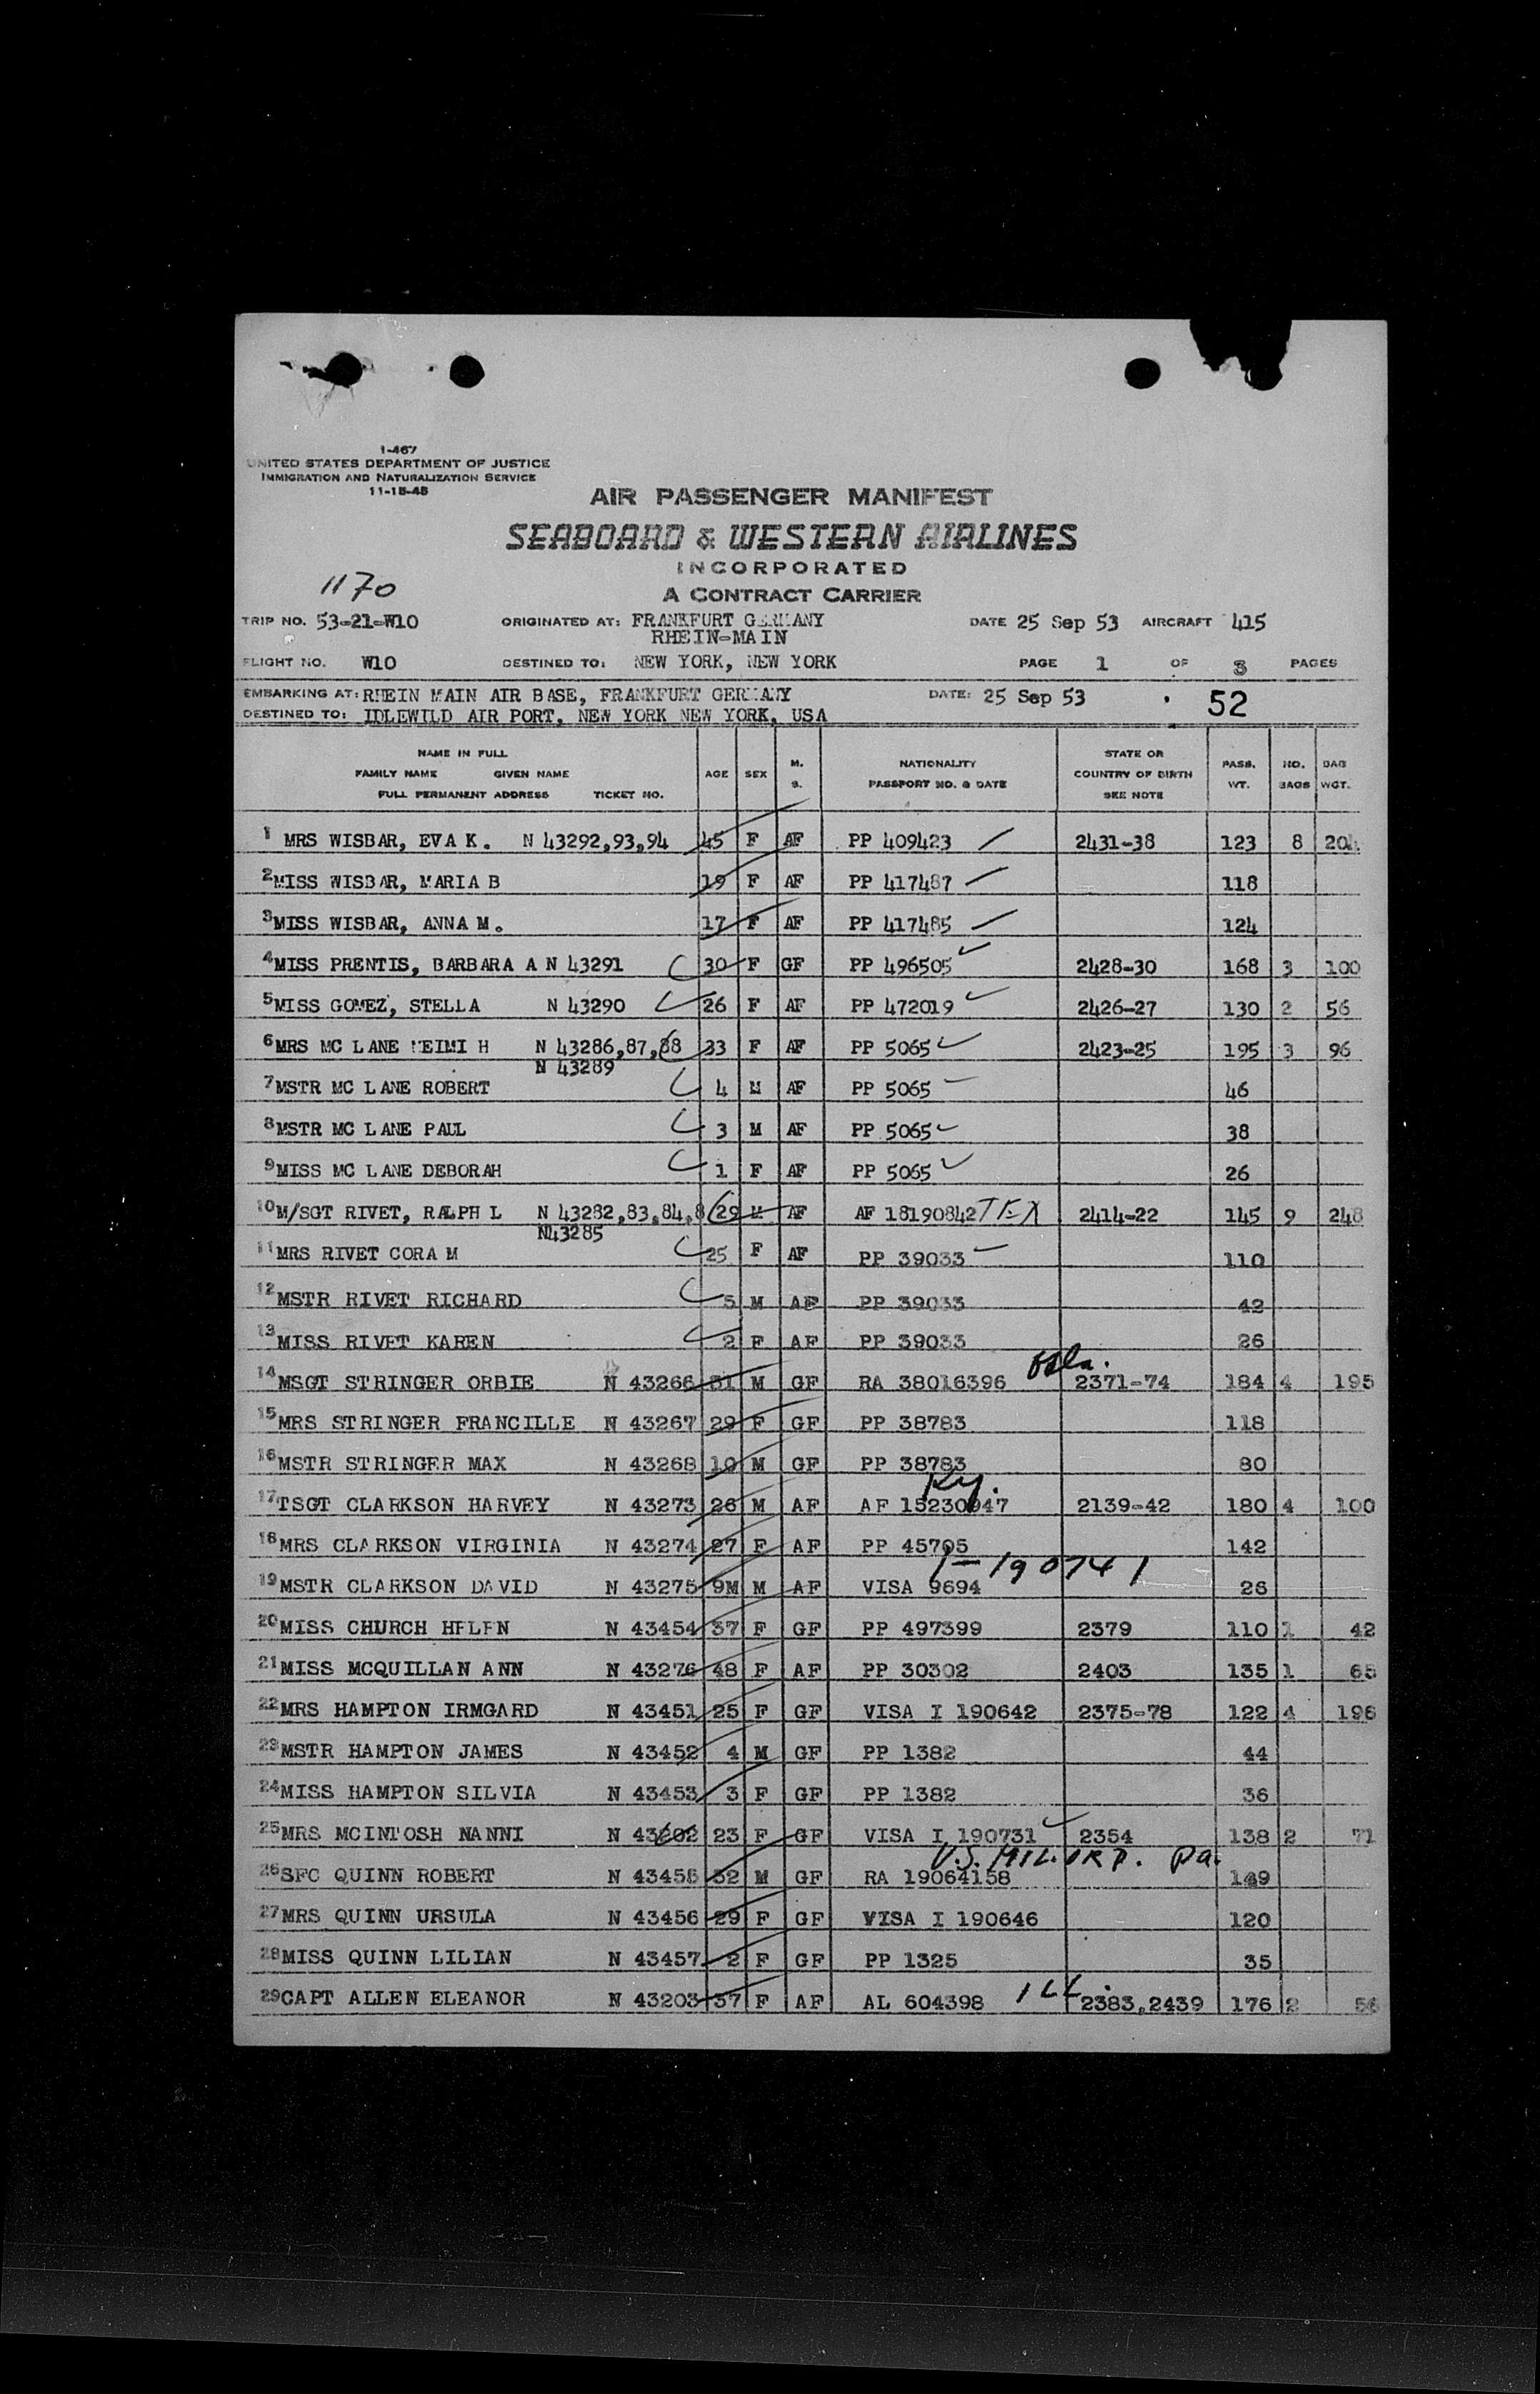 1-467
UNITED STATES DEPARTMENT OF JUSTICE
IMMIGRATION AND NATURALIZATION SERVICE
11-15-45
AIR PASSENGER MANIFEST
SEABOARD & WESTERN AIRLINES
INCORPORATED
A CONTRACT CARRIER
1170
TRIP NO. 53-21-W10 ORIGINATED AT: FRANKFURT GERMANY DATE 25 Sep 53 AIRCRAFT 415
RHEIN-MAIN
FLIGHT NO. W10 DESTINED TO: NEW YORK, NEW YORK PAGE 1 OF 3 PAGES
EMBARKING AT: RHEIN MAIN AIR BASE, FRANKFURT GERMANY DATE: 25 Sep 53 52
DESTINED TO: IDLEWILD AIR PORT, NEW YORK NEW YORK, USA
NAME IN FULL
FAMILY NAME GIVEN NAME
FULL PERMANENT ADDRESS TICKET NO.
AGE SEX M. S. NATIONALITY PASSPORT NO. & DATE STATE OR COUNTRY OF BIRTH SEE NOTE PASS. WT. NO. BAGS BAG WGT.
1 MRS WISBAR, EVA K. N 43292,93,94 45 F AF PP 409423 2431-38 123 8 204
2 MISS WISBAR, MARIA B 19 F AF PP 417487 118
3 MISS WISBAR, ANNA M. 17 F AF PP 417485 124
4 MISS PRENTIS, BARBARA A N 43291 30 F GF PP 496505 2428-30 168 3 100
5 MISS GOMEZ, STELLA N 43290 26 F AF PP 472019 2426-27 130 2 56
6 MRS MC LANE HEIMI H N 43286,87,88 33 F AF PP 5065 2423-25 195 3 96
N 43289
7 MSTR MC LANE ROBERT 4 M AF PP 5065 46
8 MSTR MC LANE PAUL 3 M AF PP 5065 38
9 MISS MC LANE DEBORAH 1 F AF PP 5065 26
10 M/SGT RIVET, RALPH L N 43282,83,84,8 29 M AF AF 18190842 TEX 2414-22 145 9 248
N43285
11 MRS RIVET CORA M 25 F AF PP 39033 110
12 MSTR RIVET RICHARD 5 M AF PP 39033 42
13 MISS RIVET KAREN 2 F AF PP 39033 26
Okla.
14 MSGT STRINGER ORBIE N 43266 31 M GF RA 38016396 2371-74 184 4 195
15 MRS STRINGER FRANCILLE N 43267 29 F GF PP 38783 118
16 MSTR STRINGER MAX N 43268 10 M GF PP 38783 80
Ky.
17 TSGT CLARKSON HARVEY N 43273 26 M AF AF 15230947 2139-42 180 4 100
18 MRS CLARKSON VIRGINIA N 43274 27 F AF PP 45705 142
I-190741
19 MSTR CLARKSON DAVID N 43275 9M M AF VISA 9694 26
20 MISS CHURCH HELEN N 43454 37 F GF PP 497399 2379 110 1 42
21 MISS MCQUILLAN ANN N 43276 48 F AF PP 30302 2403 135 1 65
22 MRS HAMPTON IRMGARD N 43451 25 F GF VISA I 190642 2375-78 122 4 196
23 MSTR HAMPTON JAMES N 43452 4 M GF PP 1382 44
24 MISS HAMPTON SILVIA N 43453 3 F GF PP 1382 36
25 MRS MCINTOSH NANNI 23 F GF VISA I 190731 2354 138 2 71
U.S. MIL. ORD. Pa.
26 SFC QUINN ROBERT N 43455 32 M GF RA 19064158 149
27 MRS QUINN URSULA N 43456 29 F GF VISA I 190646 120
28 MISS QUINN LILIAN N 43457 2 F GF PP 1325 35
29 CAPT ALLEN ELEANOR N 43203 37 F AF AL 604398 ILL. 2383,2439 176 2 56